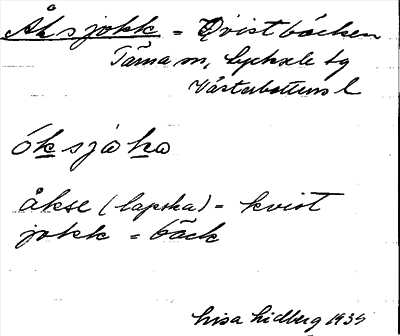 Åksjokk = Qvistbäcken
Tärna sn, Lycksele lg
Västerbottens l
óksjòkò
åkse (lapska) = kvist
jokk = bäck
Lisa Lidberg 1939